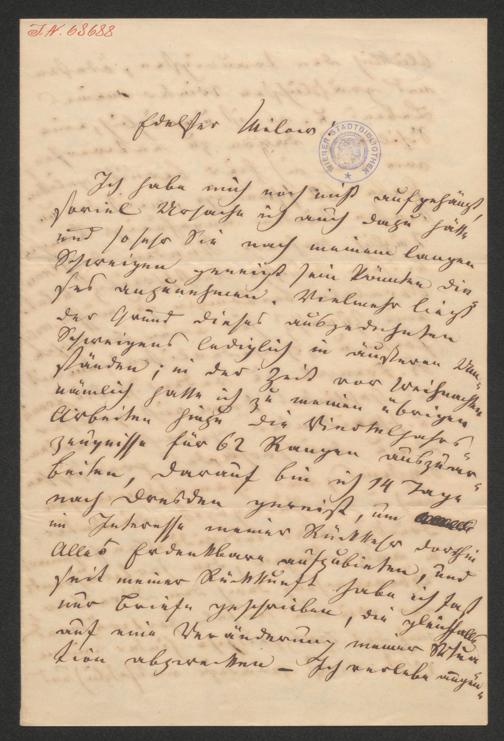 J.N. 63688
WIENER STADTBIBLIOTHEK
Edelster Milow!
Ich habe mich noch nicht aufgehängt,
soviel Ursache ich auch dazu hätte
und sosehr Sie nach meinem langen
Schweigen geneigt sein könnten die-
ses anzunehmen. Vielmehr liegt
der Grund dieses ausgedehnten
Schweigens lediglich in äusseren Um-
ständen; in der Zeit vor Weihnachten
nämlich hatte ich zu meinen übrigen
Arbeiten hinzu die Vierteljahrs
zeugnisse für 62 Rangen auszuar-
beiten, darauf bin ich 14 Tage
nach Dresden gereist, um
im Interesse meiner Rückkehr dorthin
Alles Erdenkbare aufzubieten, und
seit meiner Rückkunft habe ich fast
nur Briefe geschrieben, die gleichfalls
auf eine Veränderung meiner Situa
tion abzwecken – Ich verlebe